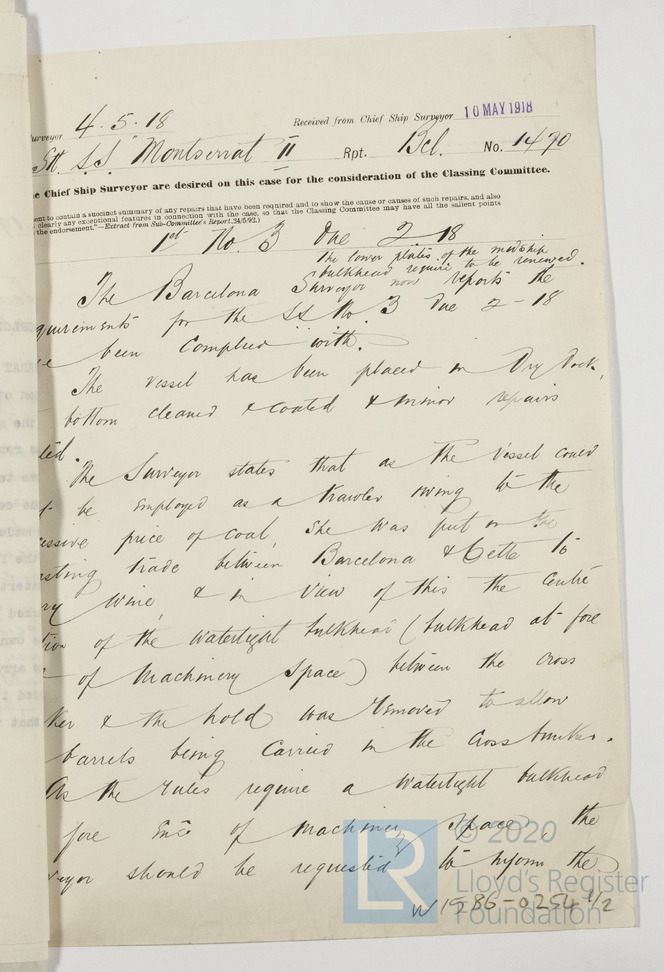 urveyor 4.5.18 Received from Chief Ship Surveyor 10 MAY 1918
Stl. S.S. "Montserrat II Rpt. Bcl. No. 1490
e Chief Ship Surveyor are desired on this case for the consideration of the Classing Committee.
ent to contain a succinct summary of any repairs that have been required and to show the cause or causes of such repairs, and also
clearly any exceptional features in connection with the case, so that the Classing Committee may have all the salient points
the endorsement."—Extract from Sub-Committee's Report, 24/5/92.)
1st No. 3 Due 2.18
The lower plates of the midship
bulkhead require to be renewed.
The Barcelona Surveyor now reports the
quirements for the SS No. 3 Due 2-18
e been complied with.
The vessel has been placed in Dry Dock,
bottom cleaned & coated & minor repairs
ted.
The Surveyor states that as the vessel could
t be employed as a trawler owing to the
cessive price of coal, she was put on the
asting trade between Barcelona & Cette to
ry wine & in view of this the centre
tion of the watertight bulkhead (bulkhead at fore
of Machinery Space) between the cross
ker & the hold was removed to allow
barrels being carried in the cross bunker.
As the rules require a watertight bulkhead
fore end of machinery space, the
veyor should be requested to inform the
© 2020
Lloyd's Register
Foundation
LR
W1586-0254 1/2